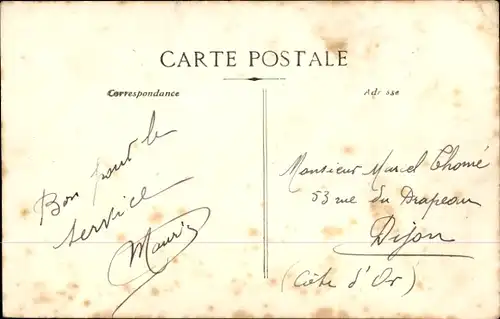 CARTE POSTALE
Correspondance
Adresse
Bon pour le
service
Monsieur Marcel Thomé
53 rue du Drapeau
Dijon
(Côte d'Or)